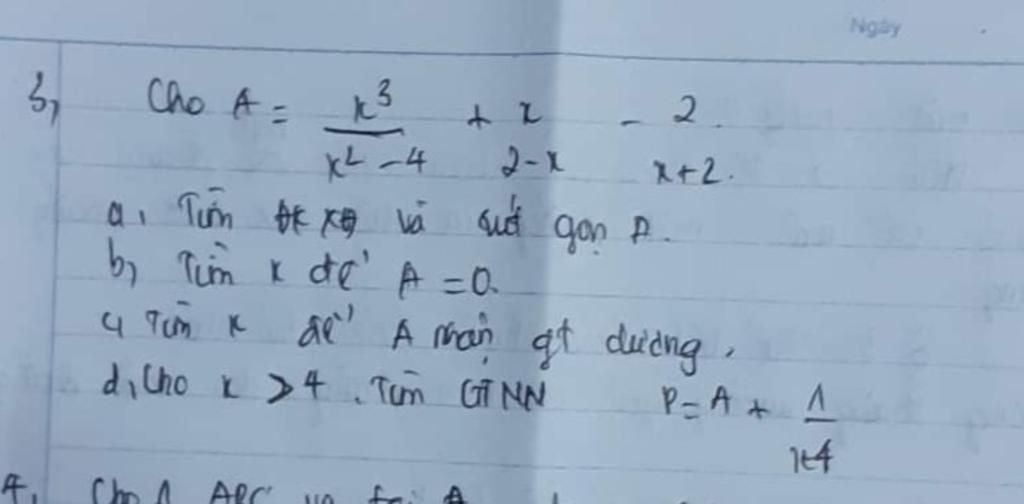 Ngày
3, Cho A = x³/(x² - 4) + x/(2 - x) - 2/(x + 2).
a, Tìm ĐKXĐ và rút gọn A.
b, Tìm x để A = 0.
c, Tìm x để A mang gt dương.
d, Cho x > 4. Tìm GTNN P = A + 1/(x-4)
4, Cho Δ ABC